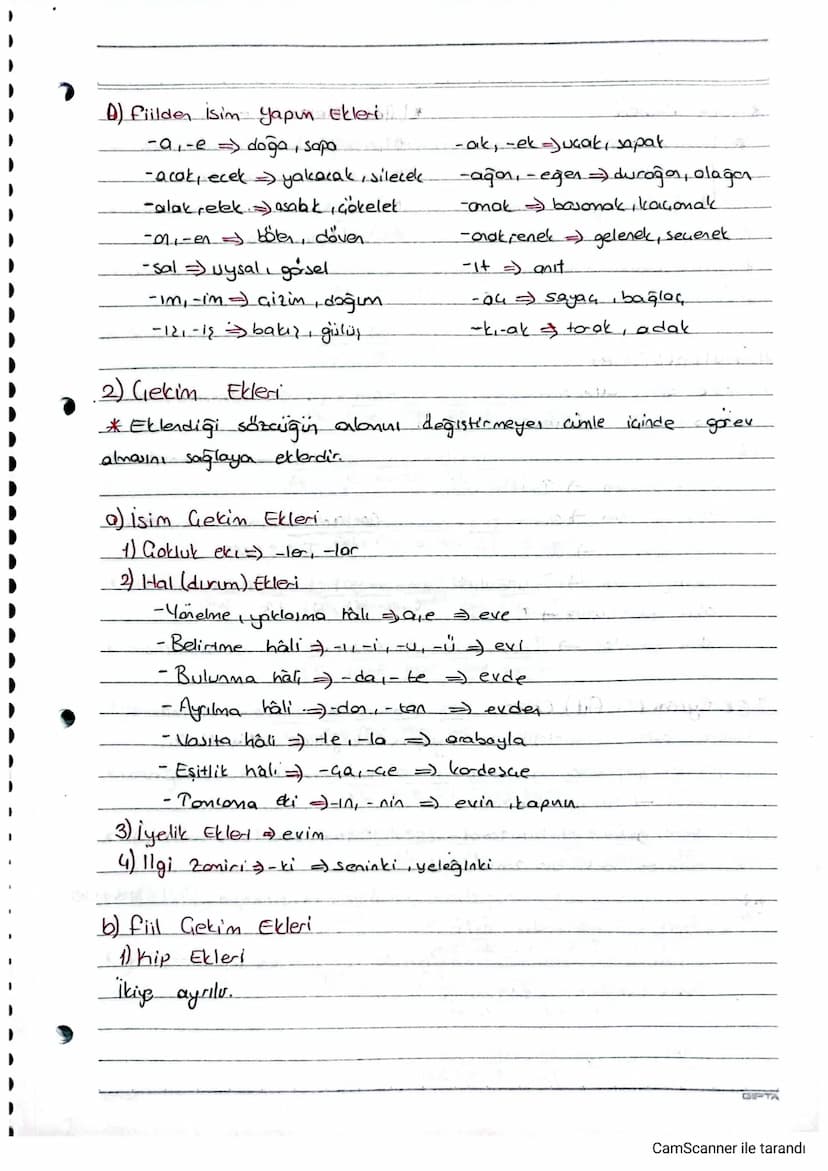 D) Fiilden İsim Yapım Ekleri
-a, -e ⇒ doğa, sapa    -ak, -ek ⇒ uçak, sapak
-acak, ecek ⇒ yakacak, silecek    -ağan, -eğen ⇒ durağan, olağan
-alak, elek ⇒ asalak, çökelek    -anak ⇒ basanak, kaçanak
-an, -en ⇒ böten, döven    -anak, enek ⇒ gelenek, seçenek
-sal ⇒ uysal, görsel    -ıt ⇒ anıt
-ım, -im ⇒ çizim, doğum    -aç ⇒ sayaç, bağlaç
-ış, -iş ⇒ bakış, gülüş    -k, -ak ⇒ tarak, adak
2) Çekim Ekleri
* Eklendiği sözcüğün anlamını değiştirmeyen cümle içinde görev
almasını sağlaya eklerdir.
a) İsim Çekim Ekleri
1) Çokluk eki ⇒ -ler, -lar
2) Hal (durum) Ekleri
-Yönelme, yaklaşma hâli ⇒ a, e ⇒ eve
-Belirtme hâli ⇒ -ı, -i, -u, -ü ⇒ evi
-Bulunma hâli ⇒ -da, -te ⇒ evde
-Ayrılma hâli ⇒ -dan, -tan ⇒ evden
-Vasıta hâli ⇒ -le, -la ⇒ arabayla
-Eşitlik hâli ⇒ -ça, -çe ⇒ kardeşçe
-Tamlama eki ⇒ -ın, -nin ⇒ evin, kapının
3) İyelik Ekleri ⇒ evim
4) İlgi Zamiri ⇒ -ki ⇒ seninki, yeleğinki
b) Fiil Çekim Ekleri
1) Kip Ekleri
İkiye ayrılır.
GIPTA
CamScanner ile tarandı